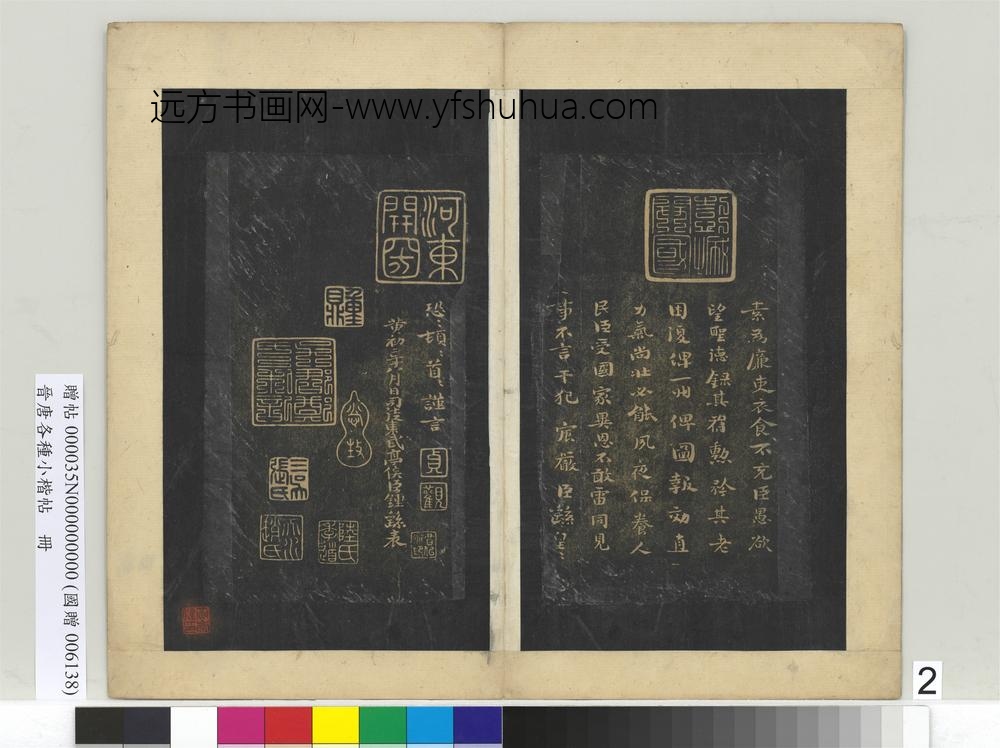 远方书画网-www.yfshuhua.com
素為廉吏衣食不充臣愚欲
望聖德錄其舊勳矜其老
困復俾一州俾圖報効直
力氣尚壯必能夙夜保養人
民臣受國家異恩不敢雷同見
事不言干犯宸嚴臣繇皇〻
恐〻頓〻首〻謹言
貞觀
黃初二年八月日司徒東武亭侯臣鍾繇表
河東
陸氏季道
贈帖 0000035N000000000 (國贈 006138)
晉唐各種小楷帖 冊
2